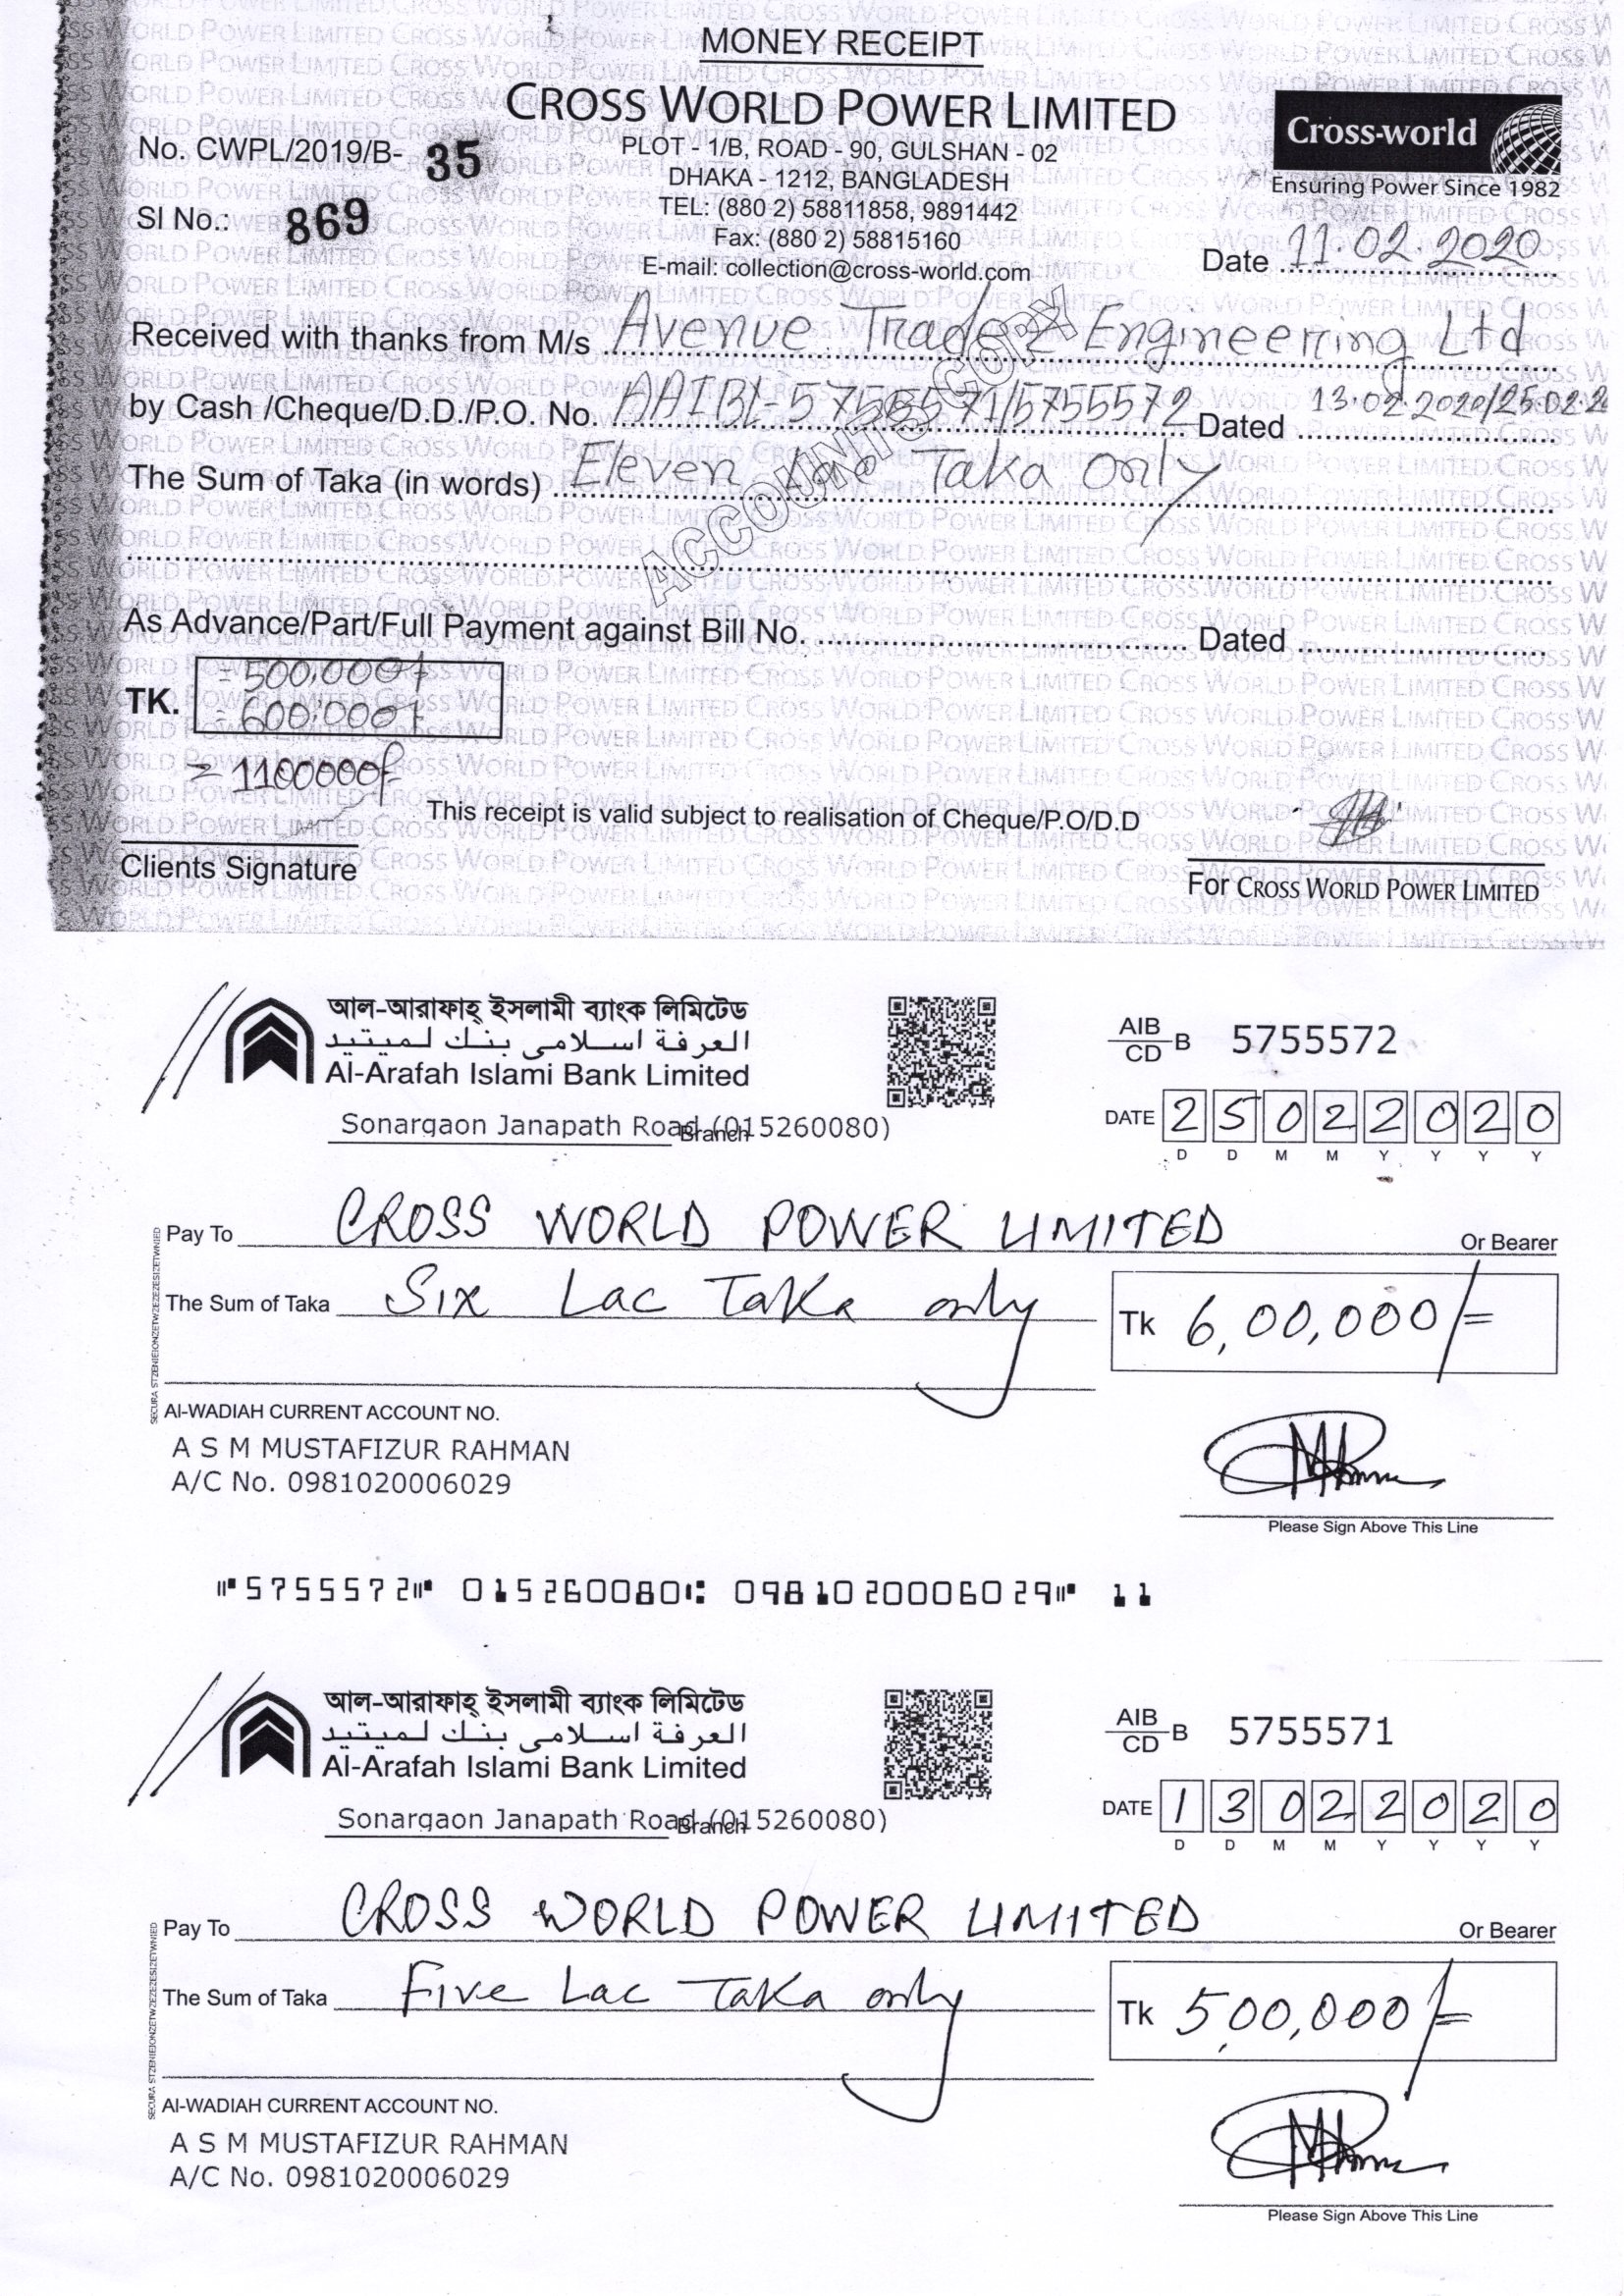 MONEY RECEIPT
CROSS WORLD POWER LIMITED
Cross-world
Ensuring Power Since 1982
No. CWPL/2019/B- 35
PLOT - 1/B, ROAD - 90, GULSHAN - 02
DHAKA - 1212, BANGLADESH
Sl No.: 869
TEL: (880 2) 58811858, 9891442
Fax: (880 2) 58815160
E-mail: collection@cross-world.com
Date 11.02.2020
Received with thanks from M/s Avenue Trade & Engineering Ltd
by Cash /Cheque/D.D./P.O. No. AAIBL-5755571/5755572 Dated 13.02.2020/25.02.2
The Sum of Taka (in words) Eleven Lac Taka Only
ACCOUNTS COPY
As Advance/Part/Full Payment against Bill No. Dated
TK. =500,000/-
=600,000/-
= 1100000/-
This receipt is valid subject to realisation of Cheque/P.O/D.D
Clients Signature
For CROSS WORLD POWER LIMITED
আল-আরাফাহ্ ইসলামী ব্যাংক লিমিটেড
العرفة اسلامى بنك لميتيد
Al-Arafah Islami Bank Limited
AIB
CD B 5755572
Sonargaon Janapath Road (015260080)
Branch
DATE 25022020
D D M M Y Y Y Y
Pay To CROSS WORLD POWER LIMITED Or Bearer
The Sum of Taka Six Lac Taka only Tk 6,00,000/=
Al-WADIAH CURRENT ACCOUNT NO.
A S M MUSTAFIZUR RAHMAN
A/C No. 0981020006029
Please Sign Above This Line
⑈5755572⑈ 015260080⑆ 0981020006029⑈ 11
আল-আরাফাহ্ ইসলামী ব্যাংক লিমিটেড
العرفة اسلامى بنك لميتيد
Al-Arafah Islami Bank Limited
AIB
CD B 5755571
Sonargaon Janapath Road (015260080)
Branch
DATE 13022020
D D M M Y Y Y Y
Pay To CROSS WORLD POWER LIMITED Or Bearer
The Sum of Taka Five Lac Taka only Tk 5,00,000/=
Al-WADIAH CURRENT ACCOUNT NO.
A S M MUSTAFIZUR RAHMAN
A/C No. 0981020006029
Please Sign Above This Line